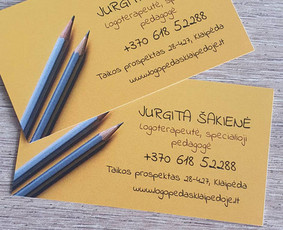 JURGITA ŠAKIENĖ
Logoterapeutė, specialioji
pedagogė
+370 618 52288
Taikos prospektas 28-427, Klaipėda
www.logopedasklaipedoje.lt
JURGITA ŠAKIENĖ
Logoterapeutė, specialioji
pedagogė
+370 618 52288
Taikos prospektas 28-427, Klaipėda
www.logopedasklaipedoje.lt